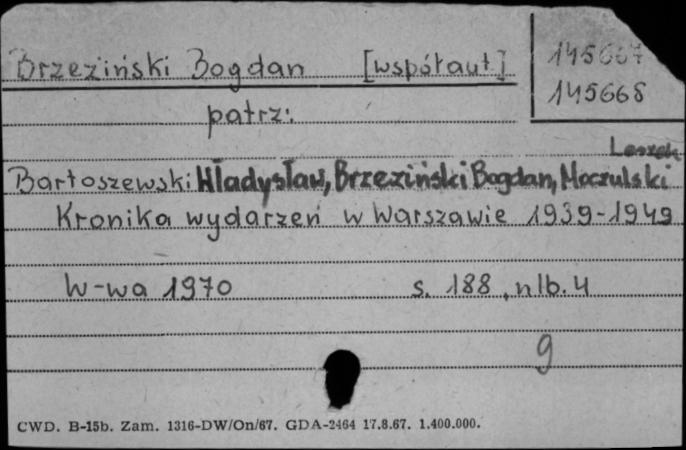 Brzeziński Bogdan [współaut.]
145667
145668
patrz:
Leszek
Bartoszewski Władysław, Brzeziński Bogdan, Moczulski
Kronika wydarzeń w Warszawie 1939-1949
W-wa 1970 s. 188, nlb. 4
9
CWD. B-15b. Zam. 1316-DW/On/67. GDA-2464 17.8.67. 1.400.000.